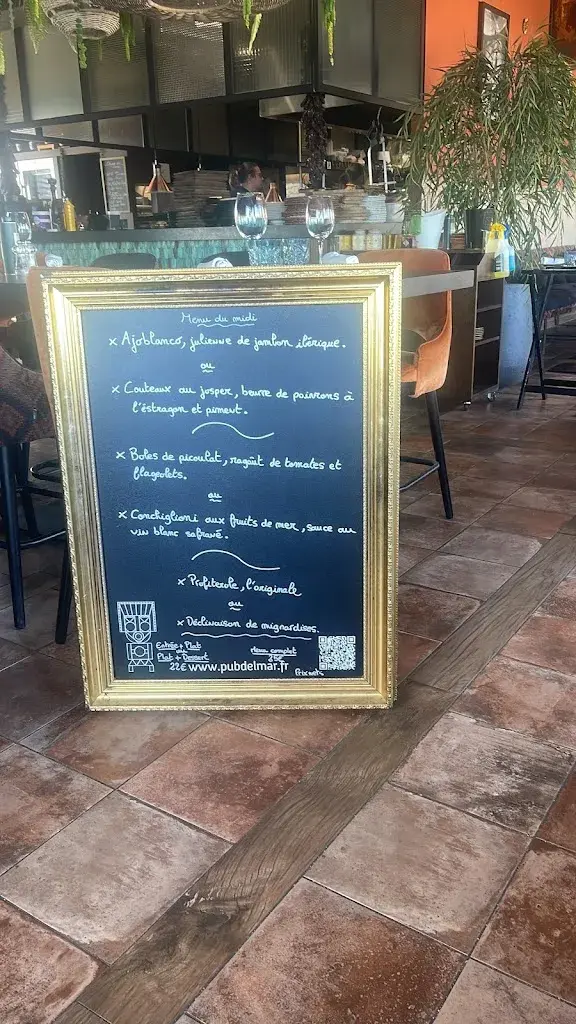 Menu du midi
x Ajoblanco, julienne de jambon ibérique.
ou
x Couteaux au josper, beurre de poivrons à
l'éstragon et piment.
x Boles de picoulat, ragoût de tomates et
flageolets.
ou
x Conchiglioni aux fruits de mer, sauce au
vin blanc safrané.
x Profiterole, l'originale
ou
x Déclinaison de mignardises.
Entrée + Plat
ou
Plat + Dessert
22€
Menu complet
25€
www.pubdelmar.fr
Prix nets